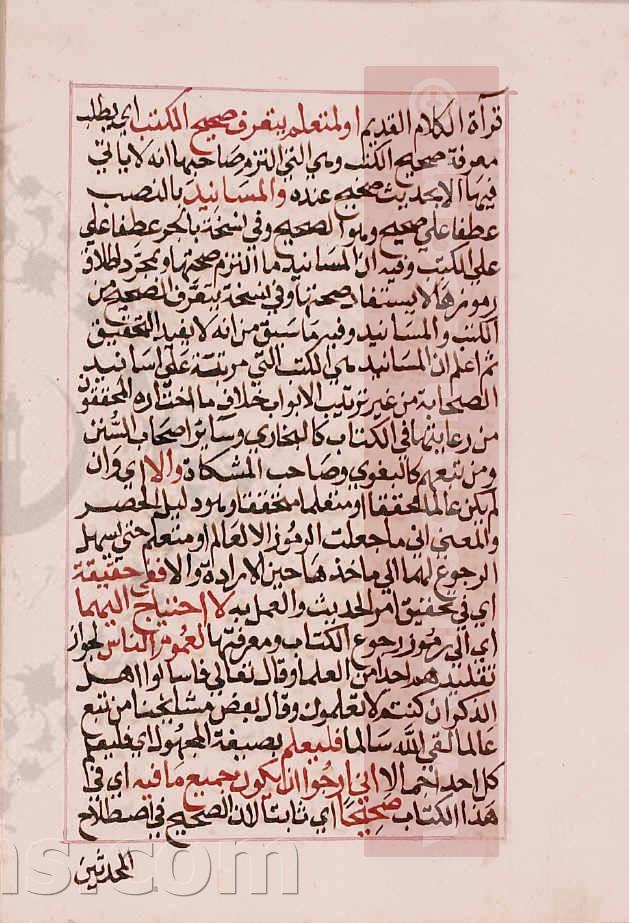 قرآة الكلام القديم او لمتعلم يتعرف صحيح الكتب اي يطلب
معرفة صحيح الكتب وهي التي التزم صاحبها انه لا ياتي
فيها الا بحديث صحيح عنده والمسانيد بالنصب
عطفا علي صحيح وهو الصحيح وفي نسخة بالجر عطفا علي
علي الكتب وفيه ان المسانيد ما التزم صحتها وبمجرد اطلاق
رموزها لا يستفاد صحتها وفي نسخة يتعرف الصحيح من
الكتب والمسانيد وفيه ما سبق من انه لا يفيد التحقيق
ثم اعلم ان المسانيد هي الكتب التي مرتبة علي اسانيد
الصحابة من غير ترتيب الابواب خلاف ما اختاره المحققون
من رعايتها في الكتاب كالبخاري وسائر اصحاب السنن
ومن تبعهم كالبغوي وصاحب المشكاة والا اي وان
لم يكن عالما محققا او متعلما متحققا وهو دليل الحصر
والمعني اني ما جعلت الرموز الا لعالم او متعلم حتي يسهل
الرجوع لهما الي ماخذها حين الارادة والا ففي حقيقة
اي في تحقيق امر الحديث والعمل به لا احتياج اليهما
اي الي رموز رجوع الكتاب ومعرفتها لعموم الناس لجواز
تقليدهم احدا من العلما وقال تعالي فاسالوا اهل
الذكر ان كنتم لا تعلمون وقال بعض مشايخنا من تبع
عالما لقي الله سالما فليعلم بصيغة المجهول اي فليعلم
كل احد اجمالا اني ارجوا ان يكون جميع ما فيه اي في
هذا الكتاب صحيحا اي ثابتا لان الصحيح في اصطلاح
المحدثين
ns.com